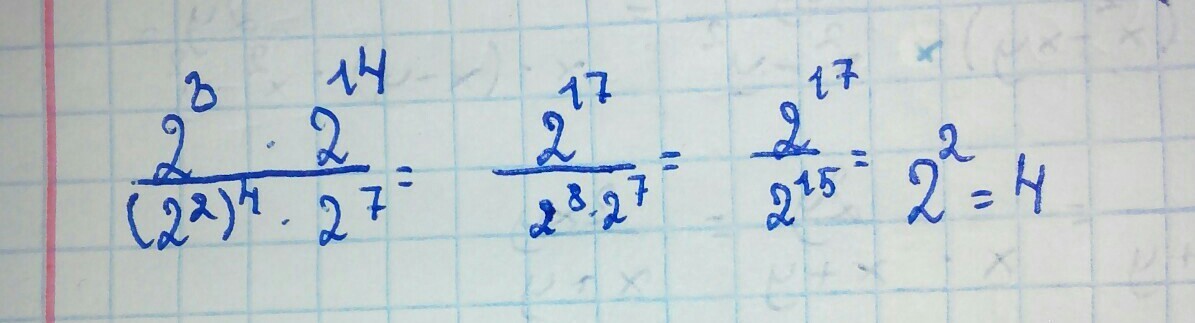 (2^3 · 2^14)/((2^2)^4 · 2^7) = 2^17/(2^8 · 2^7) = 2^17/2^15 = 2^2 = 4